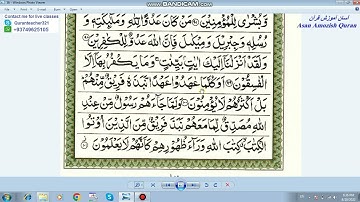 Contact me for live classes
Quranteacher321
+93749625105
آسان آموزش قرآن
Asan Amozish Quran
وَّبُشْرٰی لِلْمُؤْمِنِیْنَ ﴿۹۷﴾ مَنْ کَانَ عَدُوًّا لِّلّٰهِ وَمَلٰٓئِکَتِهٖ وَ
رُسُلِهٖ وَجِبْرِیْلَ وَمِیْکٰىلَ فَاِنَّ اللّٰهَ عَدُوٌّ لِّلْکٰفِرِیْنَ ﴿۹۸﴾
وَلَقَدْ اَنْزَلْنَاۤ اِلَیْكَ اٰیٰتٍۭ بَیِّنٰتٍ ۚ وَمَا یَکْفُرُ بِهَاۤ اِلَّا
الْفٰسِقُوْنَ ﴿۹۹﴾ اَوَکُلَّمَا عٰهَدُوْا عَهْدًا نَّبَذَهٗ فَرِیْقٌ مِّنْهُمْ ؕ
بَلْ اَکْثَرُهُمْ لَا یُؤْمِنُوْنَ ﴿۱۰۰﴾ وَلَمَّا جَآءَهُمْ رَسُوْلٌ مِّنْ عِنْدِ
اللّٰهِ مُصَدِّقٌ لِّمَا مَعَهُمْ نَبَذَ فَرِیْقٌ مِّنَ الَّذِیْنَ اُوْتُوا
الْکِتٰبَ ۙ کِتٰبَ اللّٰهِ وَرَآءَ ظُهُوْرِهِمْ کَاَنَّهُمْ لَا یَعْلَمُوْنَ